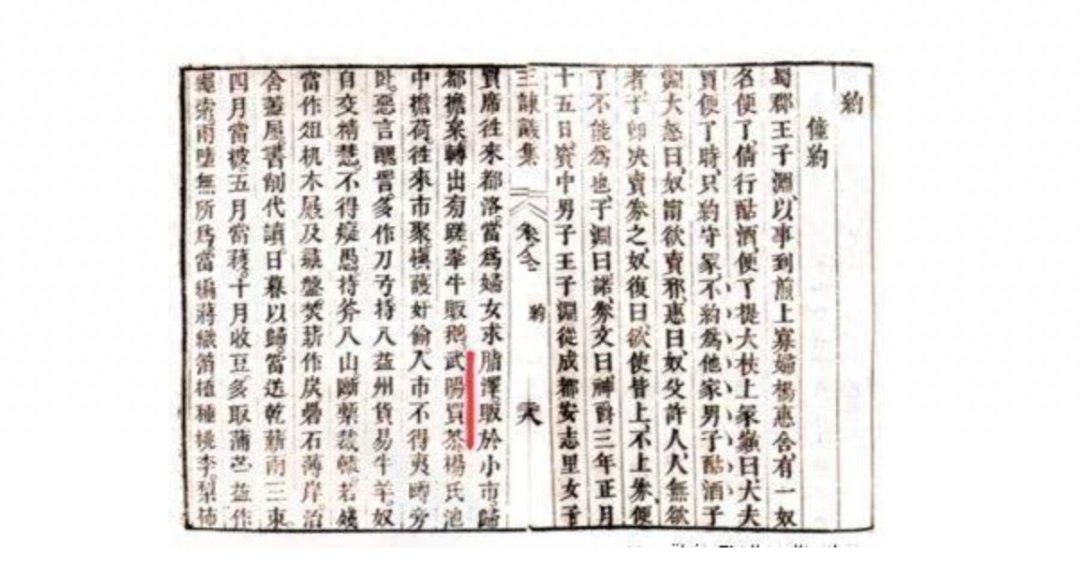 約
僮約
蜀郡王子淵以事到煎上寡婦楊惠舍有一奴
名便了倩行酤酒便了提大杖上冢巔曰大夫
買便了時只約守冢不約為他家男子酤酒子
淵大怒曰奴甯欲賣邪惠曰奴父許人人無欲
者子卽決賣券之奴復曰欲使皆上不上券便
了不能為也子淵曰諾券文曰神爵三年正月
十五日資中男子王子淵從成都安志里女子
王諫議集 卷全 約 六
貫席往來都洛當為婦女求脂澤販於小市歸
都擔枲轉出旁蹉牽牛販鵝武陽買茶楊氏池
中擔荷往來市聚慎護奸偷入市不得夷蹲旁
臥惡言醜詈多作刀弓持入益州貨易牛羊奴
自交精慧不得癡愚持斧入山斷槧裁轅若殘
當作俎机木屐及彘盤焚薪作炭礨石薄岸治
舍蓋屋書削代讀日暮以歸當送乾薪兩三束
四月當披五月當穫十月收豆多取蒲苧益作
繩索雨墮無所為當編蔣織箔植種桃李梨柿